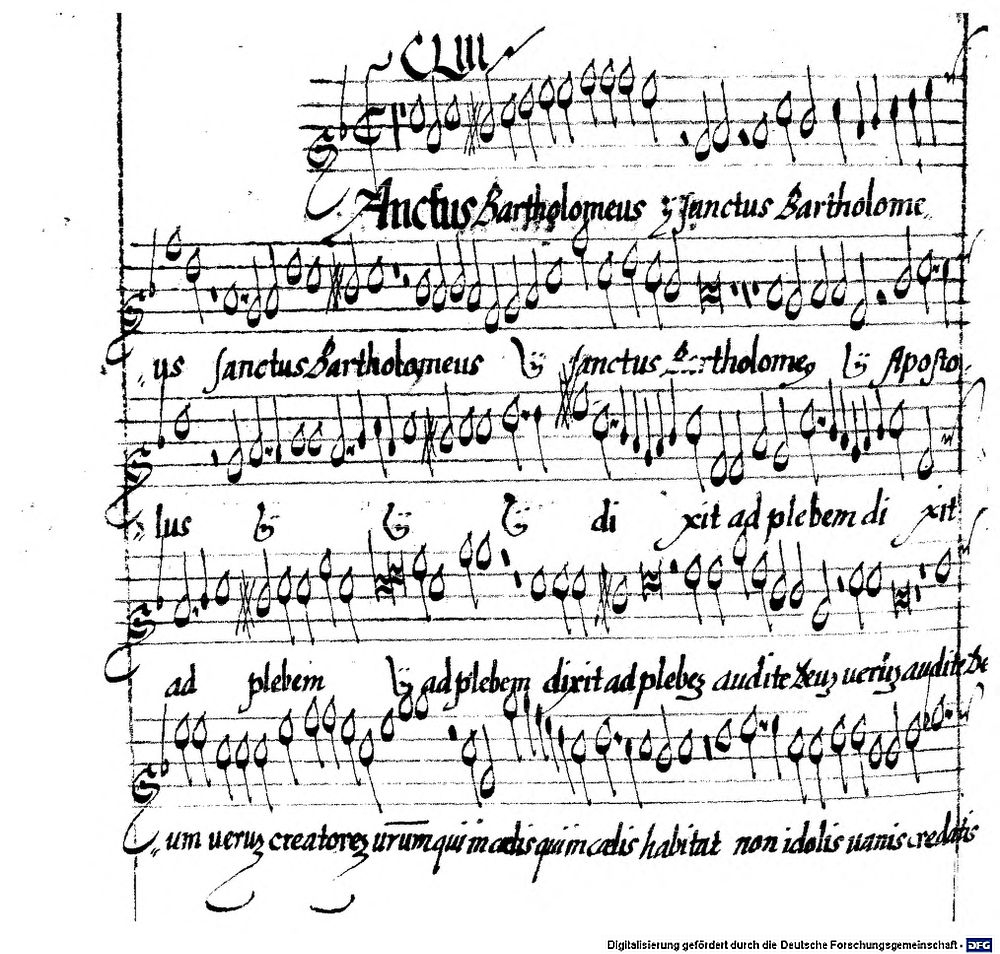 CLIII
SAnctus Bartholomeus ij Sanctus Bartholome
us sanctus Bartholomeus ij sanctus Bartholomeus ij Aposto
lus ij ij ij di xit ad plebem di xit
ad plebem ij ad plebem dixit ad plebeʒ audite deuʒ ueruʒ audite De
um ueruʒ creatoreʒ ur̄um qui in cœlis qui in cœlis habitat non idolis uanis credatis
Digitalisierung gefördert durch die Deutsche Forschungsgemeinschaft - DFG